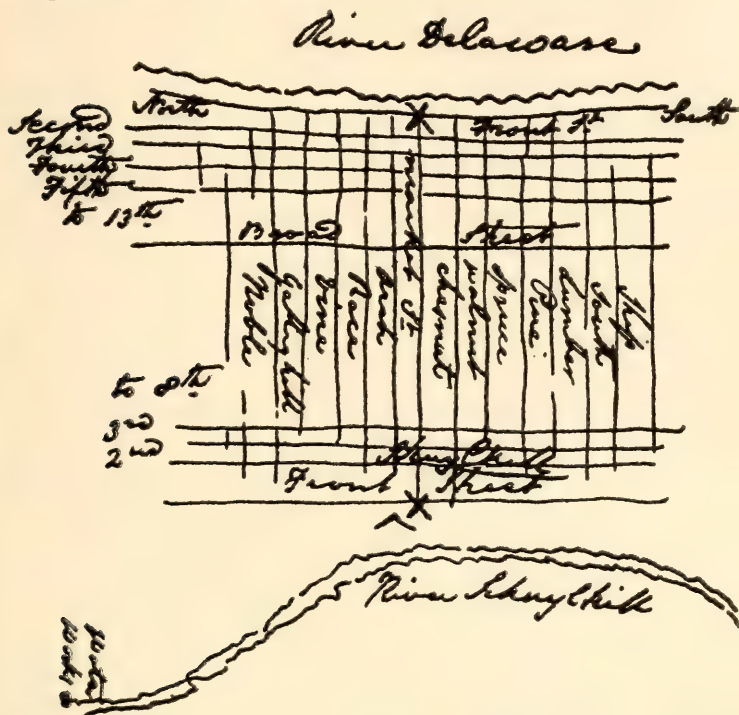 River Delaware
North
South
Front St
Second
Third
Fourth
Fifth
to 13th
Broad Street
Market St
Noble
Callowhill
Vine
Race
Arch
chesnut
walnut
Spruce
Pine
Lumber
South
Ship
to 8th
3rd
2nd
Schuylkill
Front Street
River Schuylkill
Water
Works